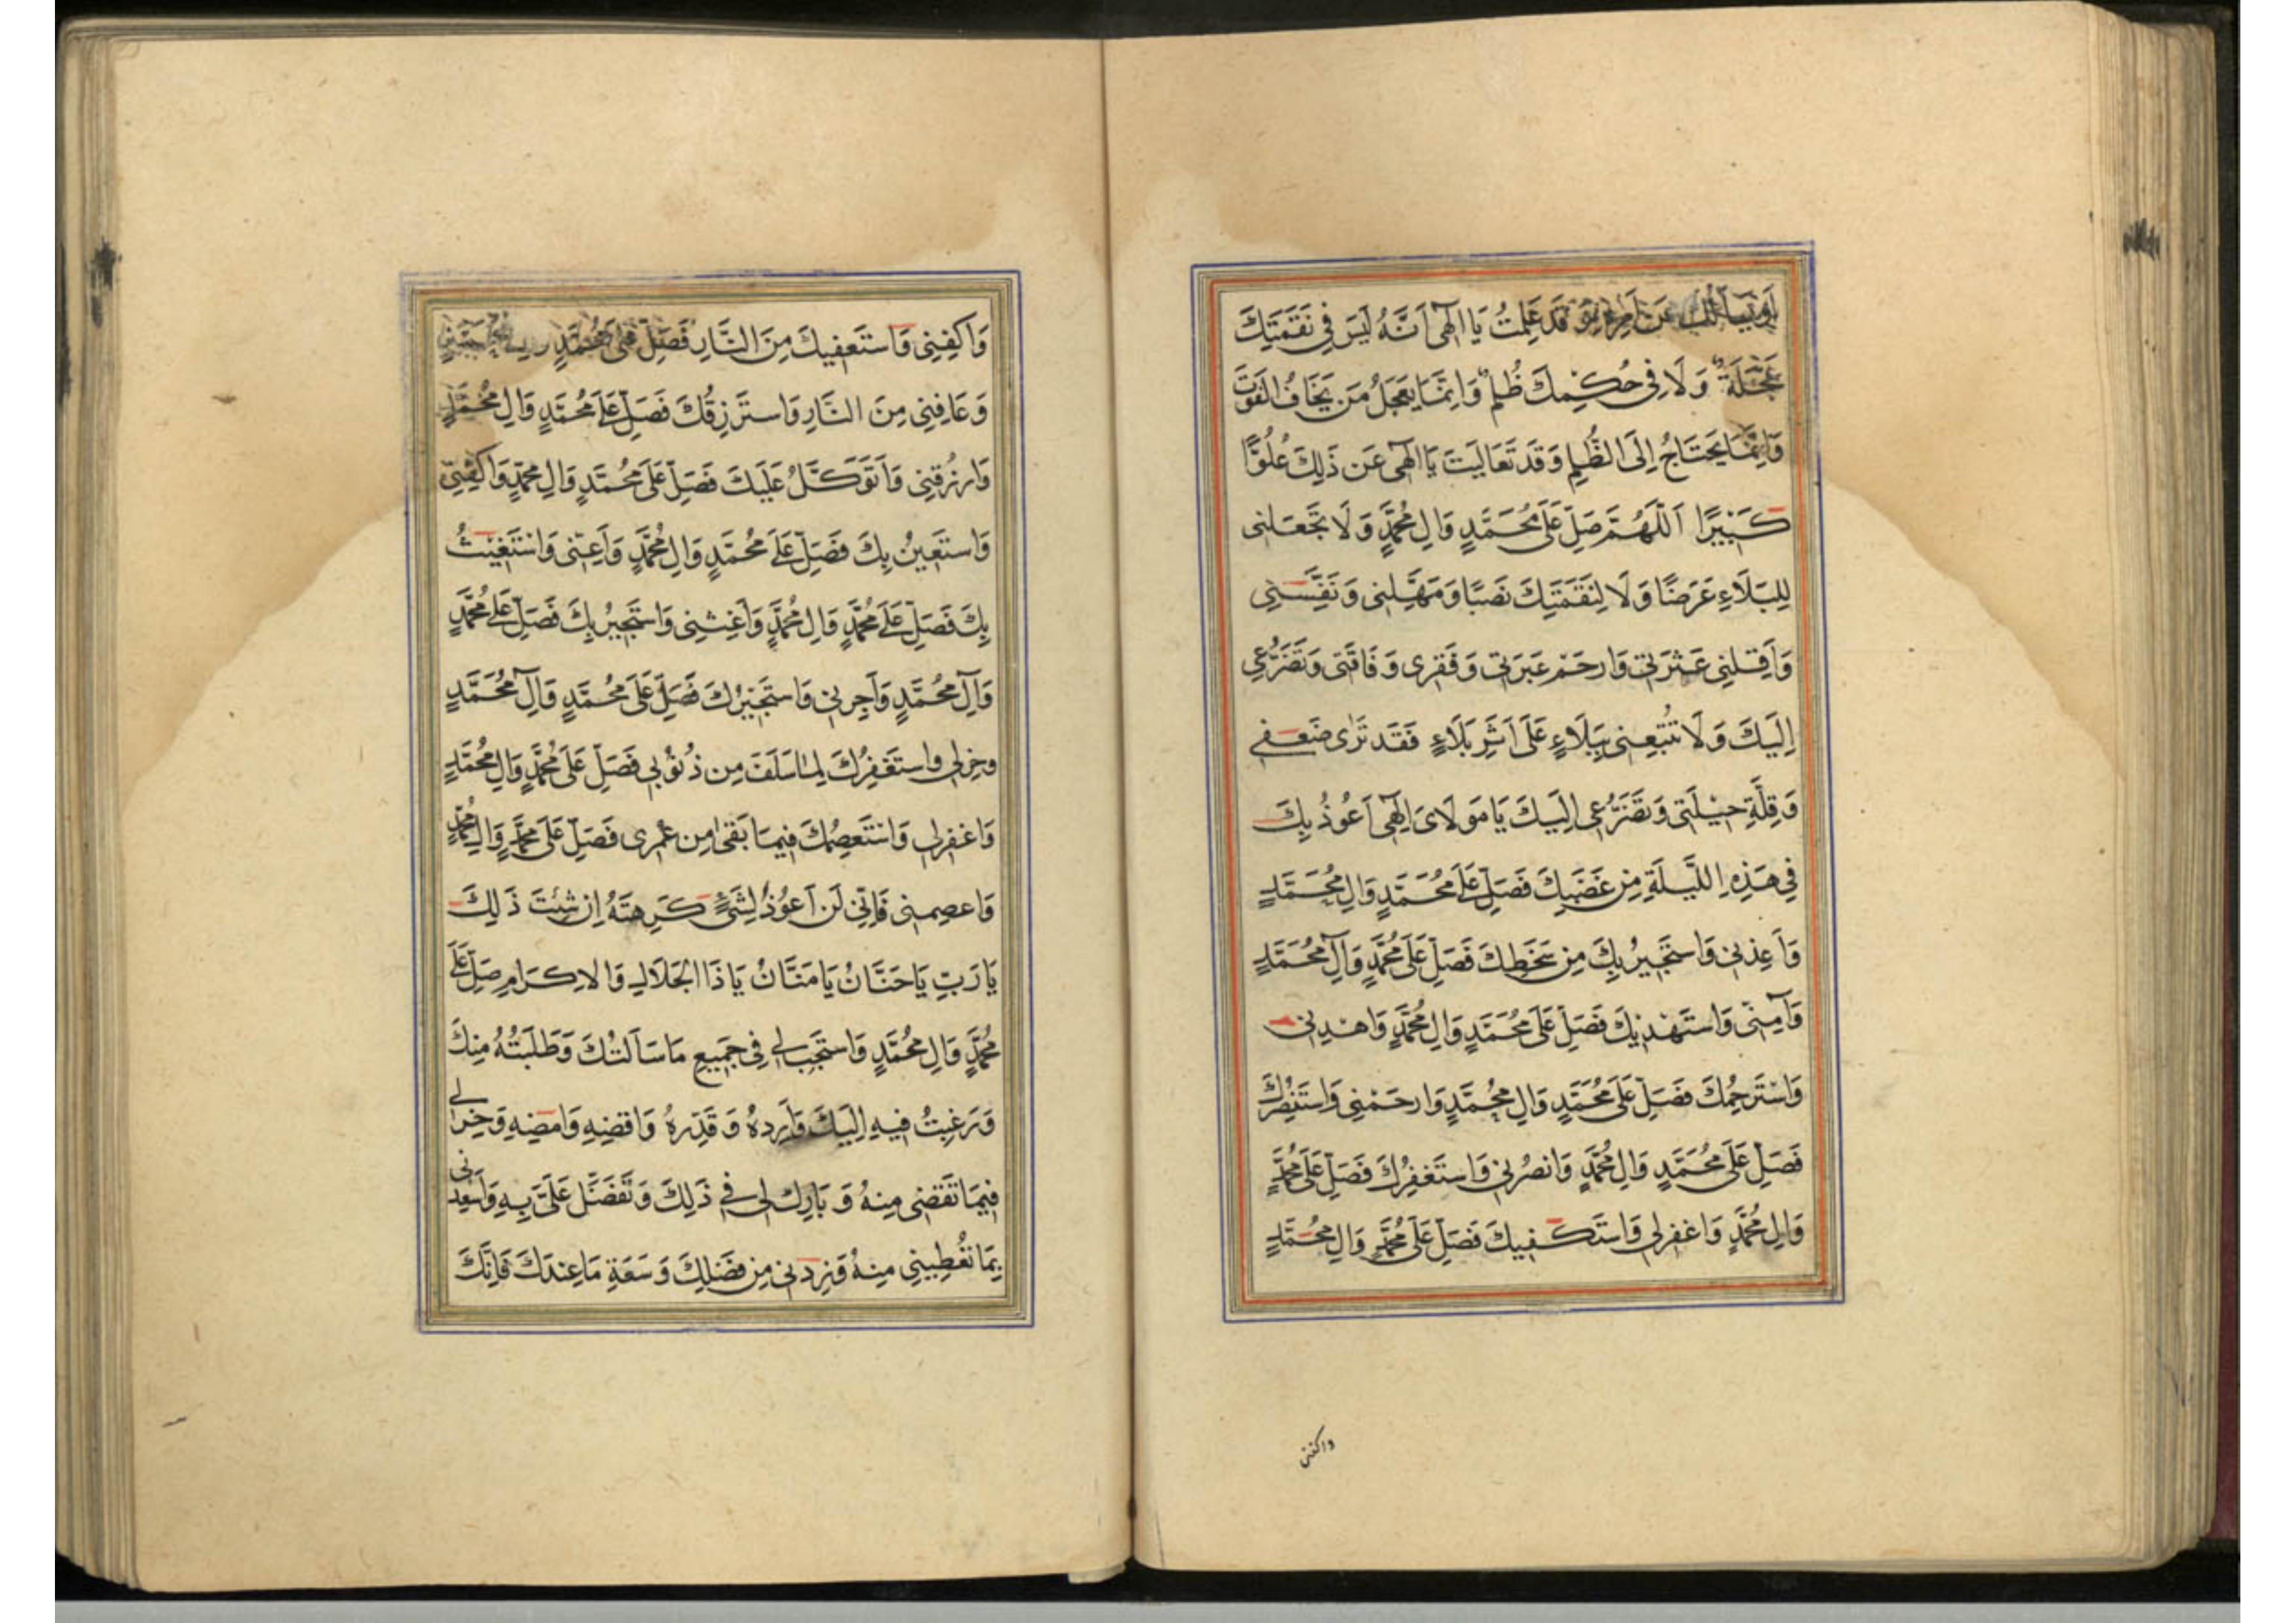 أَو يَسأَلُكَ عَن أَمرِهِ وَ قَد عَلِمتُ يَا اِلٰهِى اَنَّهُ لَيسَ فِى نَقَمَتِكَ
عَجَلَةٌ وَ لَا فِى حُكمِكَ ظُلمٌ وَ اِنَّمَا يَعجَلُ مَن يَخَافُ الفَوتَ
وَ اِنَّمَا يَحتَاجُ اِلَى الظُّلمِ وَ قَد تَعَالَيتَ يَا اِلٰهِى عَن ذَلِكَ عُلُوًّا
كَبِيرًا اَللّٰهُمَّ صَلِّ عَلَى مُحَمَّدٍ وَالِ مُحَمَّدٍ وَ لَا تَجعَلنِى
لِلبَلَاءِ عَرَضًا وَ لَا لِنَقَمَتِكَ نَصَبًا وَ مَهِّلنِى وَ نَفِّسنِى
وَ اَقِلنِى عَثرَتِى وَارحَم عَبرَتِى وَ فَقرِى وَ فَاقَتِى وَ تَضَرُّعِى
اِلَيكَ وَ لَا تُتبِعنِى بِبَلَاءٍ عَلَى اَثَرِ بَلَاءٍ فَقَد تَرٰى ضَعفِى
وَ قِلَّةِ حِيلَتِى وَ تَضَرُّعِى اِلَيكَ يَا مَولَاىَ اِلٰهِى اَعُوذُ بِكَ
فِى هَذِهِ اللَّيلَةِ مِن غَضَبِكَ فَصَلِّ عَلَى مُحَمَّدٍ وَالِ مُحَمَّدٍ
وَ اَعِذنِى وَ استَجِيرُ بِكَ مِن سَخَطِكَ فَصَلِّ عَلَى مُحَمَّدٍ وَ آلِ مُحَمَّدٍ
وَ آمِنِّى وَ استَهدِيكَ فَصَلِّ عَلَى مُحَمَّدٍ وَالِ مُحَمَّدٍ وَاهدِنِى
وَ استَرحِمُكَ فَصَلِّ عَلَى مُحَمَّدٍ وَالِ مُحَمَّدٍ وَارحَمنِى وَ استَنصِرُكَ
فَصَلِّ عَلَى مُحَمَّدٍ وَالِ مُحَمَّدٍ وَانصُرنِى وَ استَغفِرُكَ فَصَلِّ عَلَى مُحَمَّدٍ
وَالِ مُحَمَّدٍ وَاغفِرلِى وَ استَكفِيكَ فَصَلِّ عَلَى مُحَمَّدٍ وَالِ مُحَمَّدٍ
واكفنى
وَ اكفِنِى وَ استَعفِيكَ مِنَ النَّارِ فَصَلِّ عَلَى مُحَمَّدٍ
وَ عَافِنِى مِنَ النَّارِ وَ استَرزِقُكَ فَصَلِّ عَلَى مُحَمَّدٍ وَالِ مُحَمَّدٍ
وَارزُقنِى وَ اَتَوَكَّلُ عَلَيكَ فَصَلِّ عَلَى مُحَمَّدٍ وَالِ مُحَمَّدٍ وَاكفِنِى
وَ استَعِينُ بِكَ فَصَلِّ عَلَى مُحَمَّدٍ وَالِ مُحَمَّدٍ وَ اَعِنِّى وَ استَغِيثُ
بِكَ فَصَلِّ عَلَى مُحَمَّدٍ وَالِ مُحَمَّدٍ وَ اَغِثنِى وَ استَجِيرُ بِكَ فَصَلِّ عَلَى مُحَمَّدٍ
وَ آلِ مُحَمَّدٍ وَ اَجِرنِى وَ استَخِيرُكَ فَصَلِّ عَلَى مُحَمَّدٍ وَ آلِ مُحَمَّدٍ
وخِرلِى واستَغفِرُكَ لِمَا سَلَفَ مِن ذُنُوبِى فَصَلِّ عَلَى مُحَمَّدٍ وَالِ مُحَمَّدٍ
وَاغفِرلِى وَ استَعصِمُكَ فِيمَا بَقِىَ مِن عُمرِى فَصَلِّ عَلَى مُحَمَّدٍ وَالِ مُحَمَّدٍ
وَ اعصِمنِى فَاِنِّى لَن اَعُوذَ لِشَىءٍ كَرِهتَهُ اِن شِئتَ ذَلِكَ
يَا رَبِّ يَا حَنَّانُ يَا مَنَّانُ يَا ذَا الجَلَالِ وَ الاِكرَامِ صَلِّ عَلَى
مُحَمَّدٍ وَالِ مُحَمَّدٍ وَ استَجِب لِى فِى جَمِيعِ مَا سَاَلتُكَ وَ طَلَبتُهُ مِنكَ
وَ رَغِبتُ فِيهِ اِلَيكَ وَ اَرِدهُ وَ قَدِّرهُ وَ اقضِهِ وَ امضِهِ وَ خِرلِى
فِيمَا تَقضِى مِنهُ وَ بَارِك لِى فِى ذَلِكَ وَ تَفَضَّل عَلَىَّ بِهِ وَ اَسعِدنِى
بِمَا تُعطِينِى مِنهُ وَ زِدنِى مِن فَضلِكَ وَ سَعَةِ مَا عِندَكَ فَاِنَّكَ